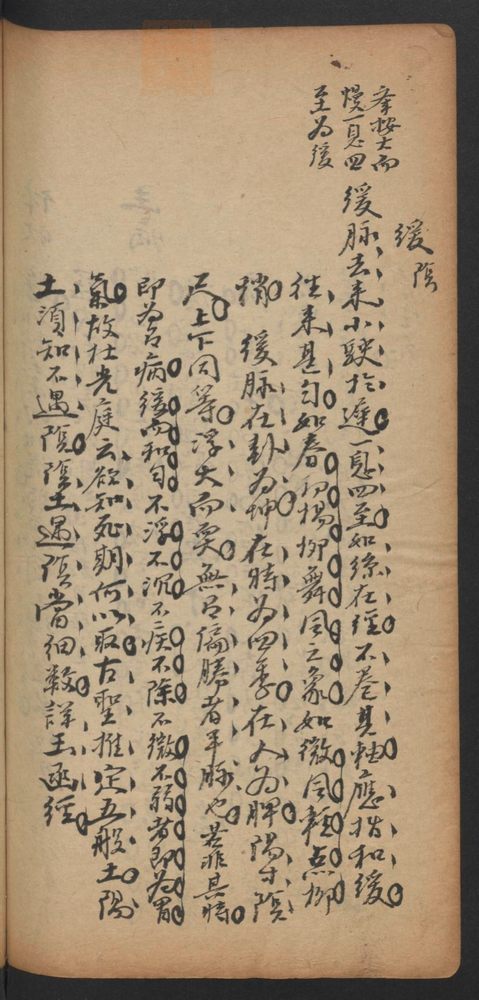 緩 陰
舉按大而
慢一息四
至為緩
緩脉去来小駃於遲一息四至如絲在經不卷其軸應指和緩
往来甚勻如春初楊柳舞風之象如微風輕点柳
梢 緩脉在卦為坤在時為四季在人為脾陽寸陰
尺上下同等浮大而耎無有偏勝者平脉也若非其時
即為有病緩而和勻不浮不沉不疾不徐不微不弱者即為胃
氣故杜光庭云欲知死期何以取古聖推定五般土陽
土須知不遇陰陰土遇陰當細数詳玉函經